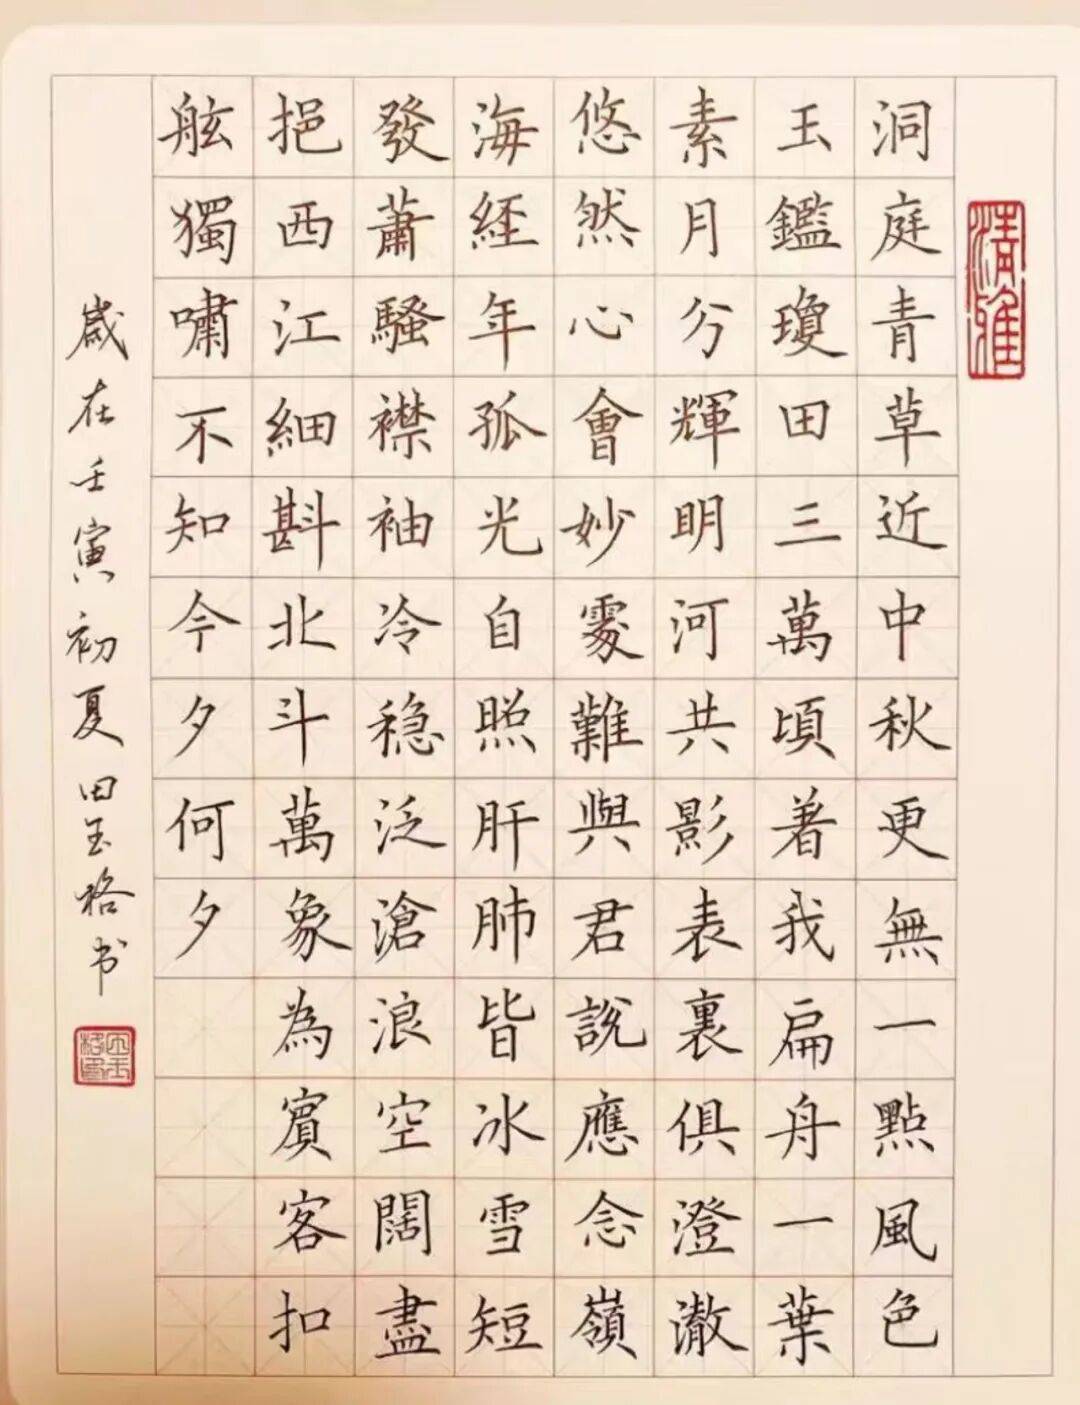 清雅
洞庭青草近中秋更無一點風色
玉鑑瓊田三萬頃着我扁舟一葉
素月分輝明河共影表裏俱澄澈
悠然心會妙處難與君說應念嶺
海經年孤光自照肝肺皆冰雪短
發蕭騷襟袖冷穏泛滄浪空闊盡
挹西江細斟北斗萬象為賓客扣
舷獨嘯不知今夕何夕
歲在壬寅初夏田玉格书